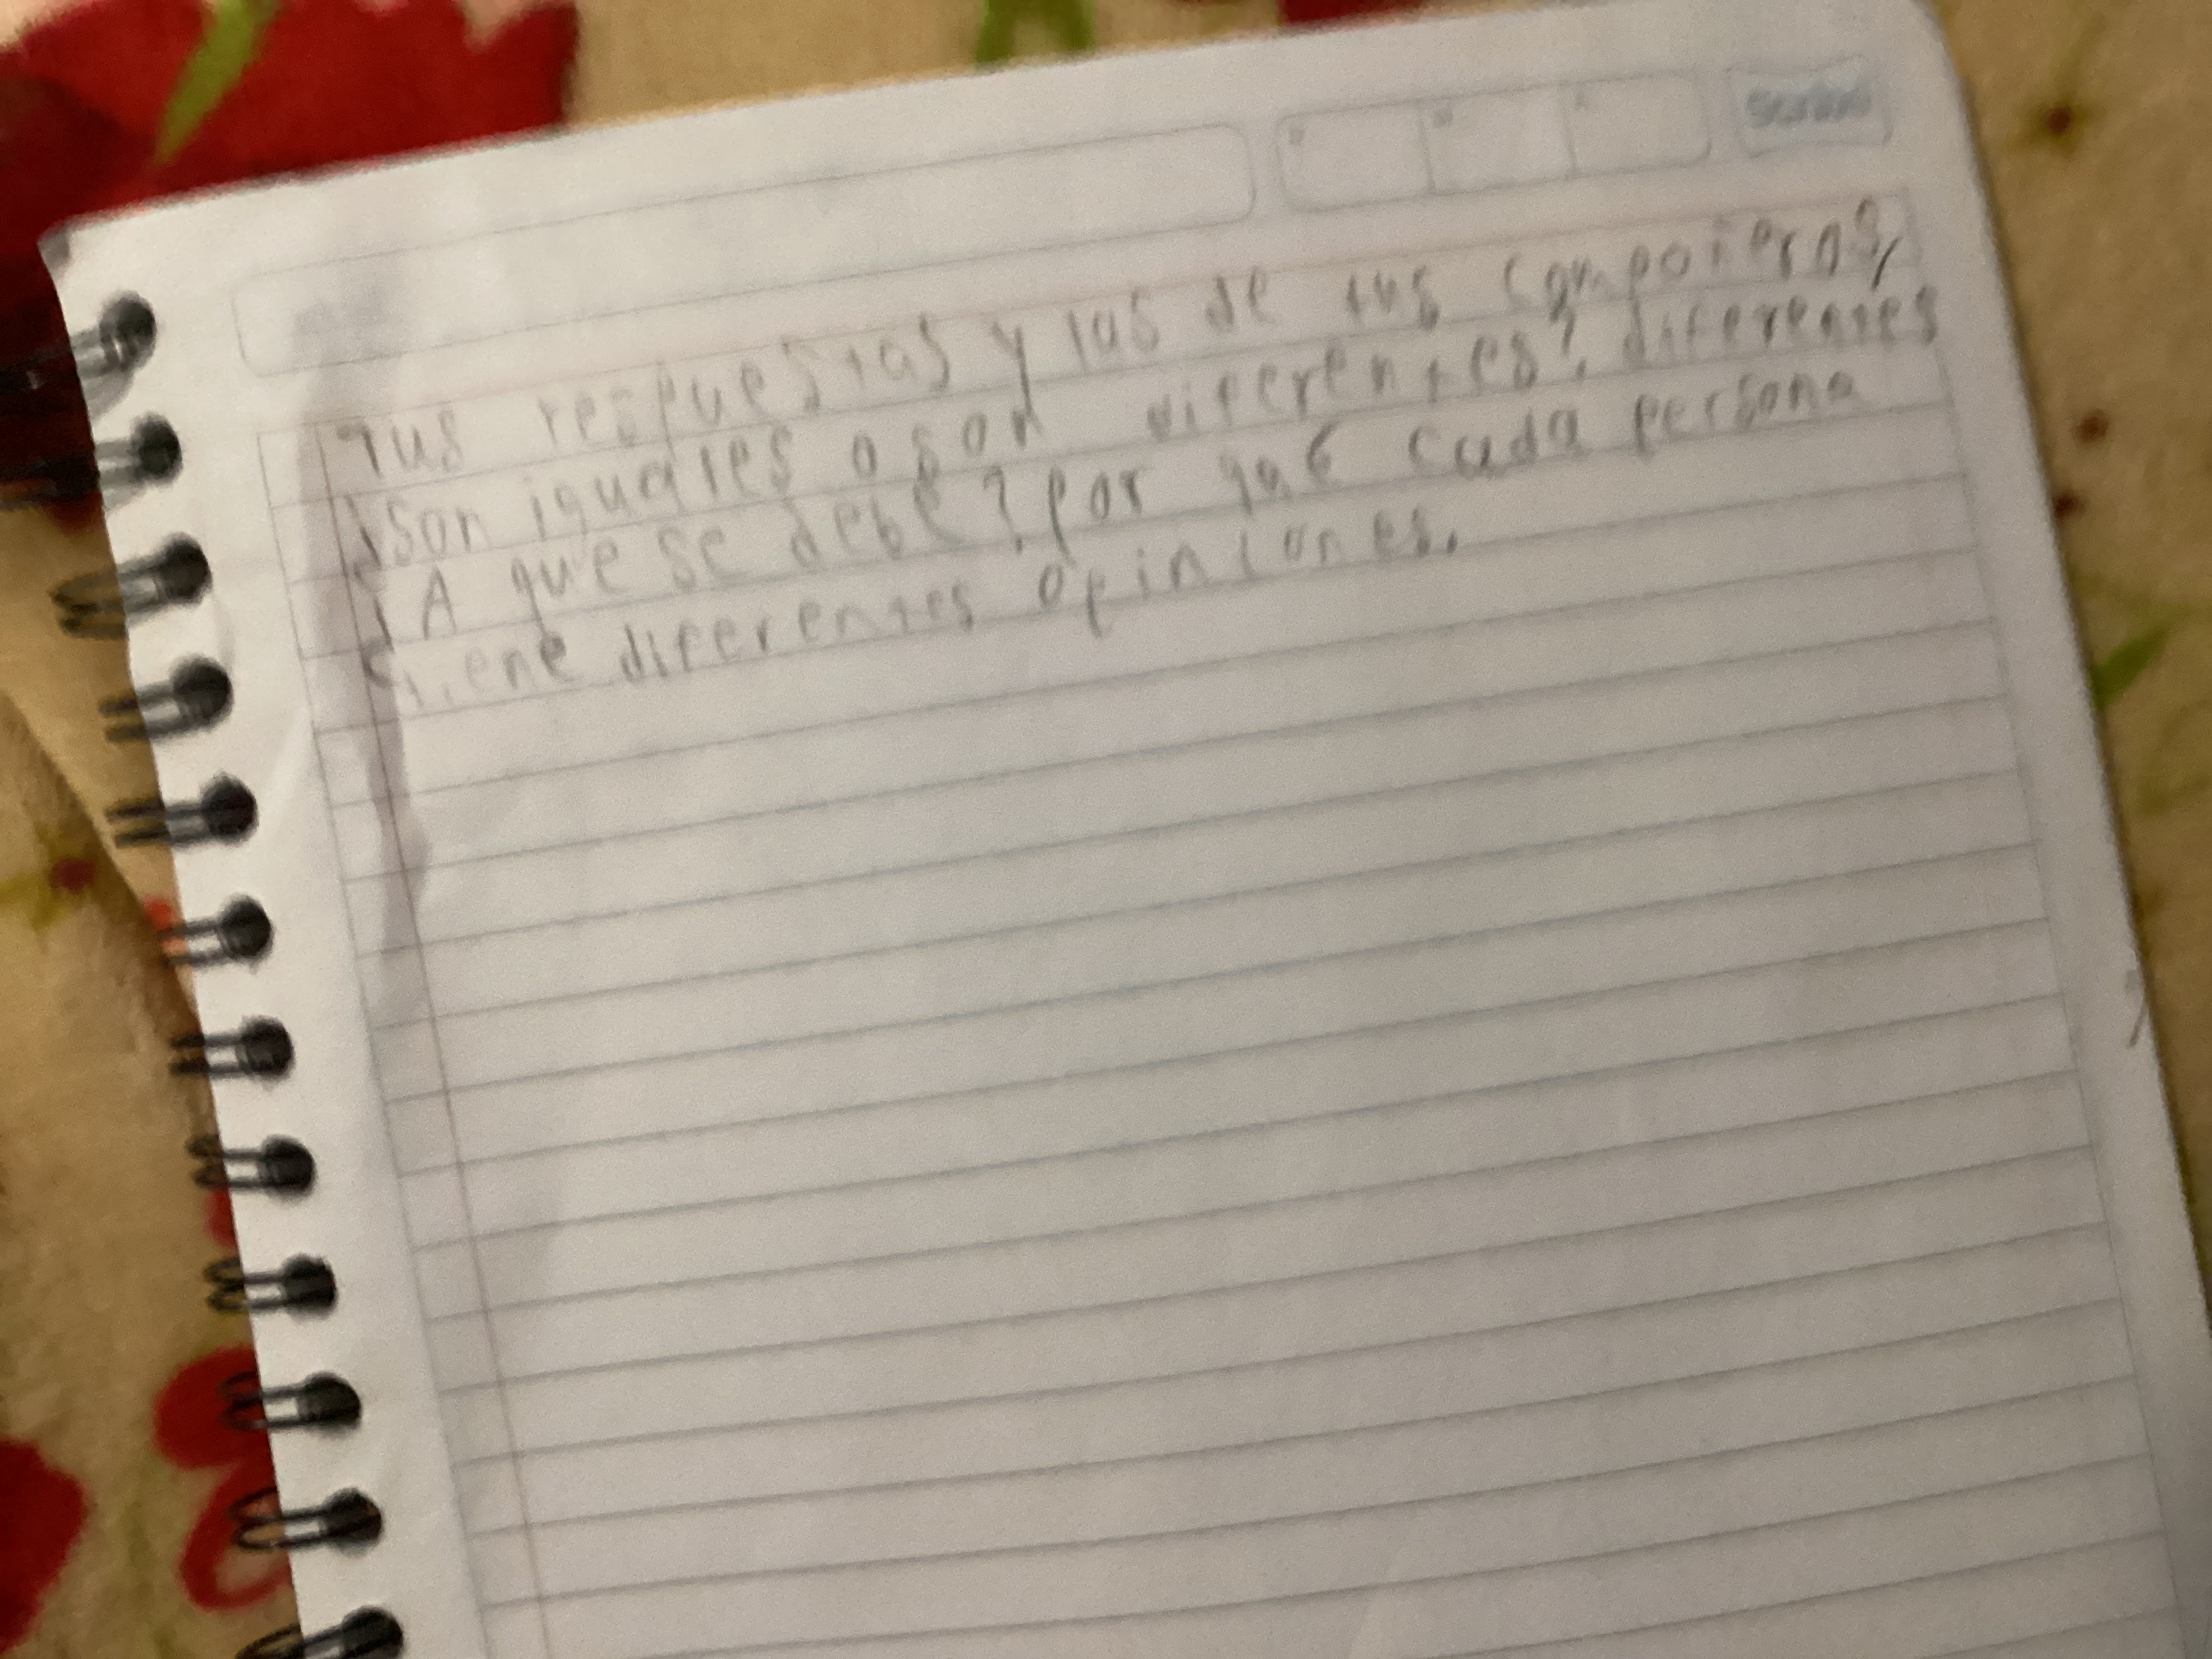 Scribe
Tus respuestas y las de tus compañeros,
¿son iguales o son diferentes?, diferentes
¿A que se debe? por qué cada persona
tiene diferentes opiniones.